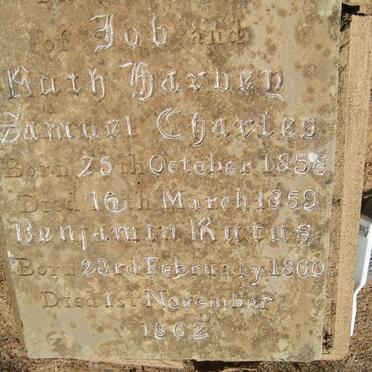 of Job and
Ruth Harvey
Samuel Charles
Born 25th October 1858
Died 16th March 1859
Benjamin Rufus
Born 23rd February 1860
Died 1st November
1862